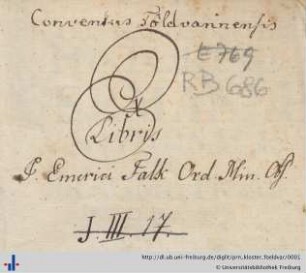 Conventus Földvarinensis
E 769
RB 686
Ex
Libris
P. Emerici Falk Ord. Min. Obs.
J. III. 17.
http://dl.ub.uni-freiburg.de/diglit/prn_kloster_foeldvar/0001
© Universitätsbibliothek Freiburg